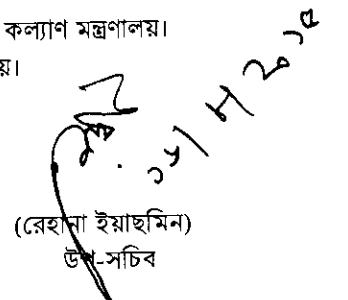 কল্যাণ মন্ত্রণালয়।
য়।
(রেহানা ইয়াছমিন)
উপ-সচিব